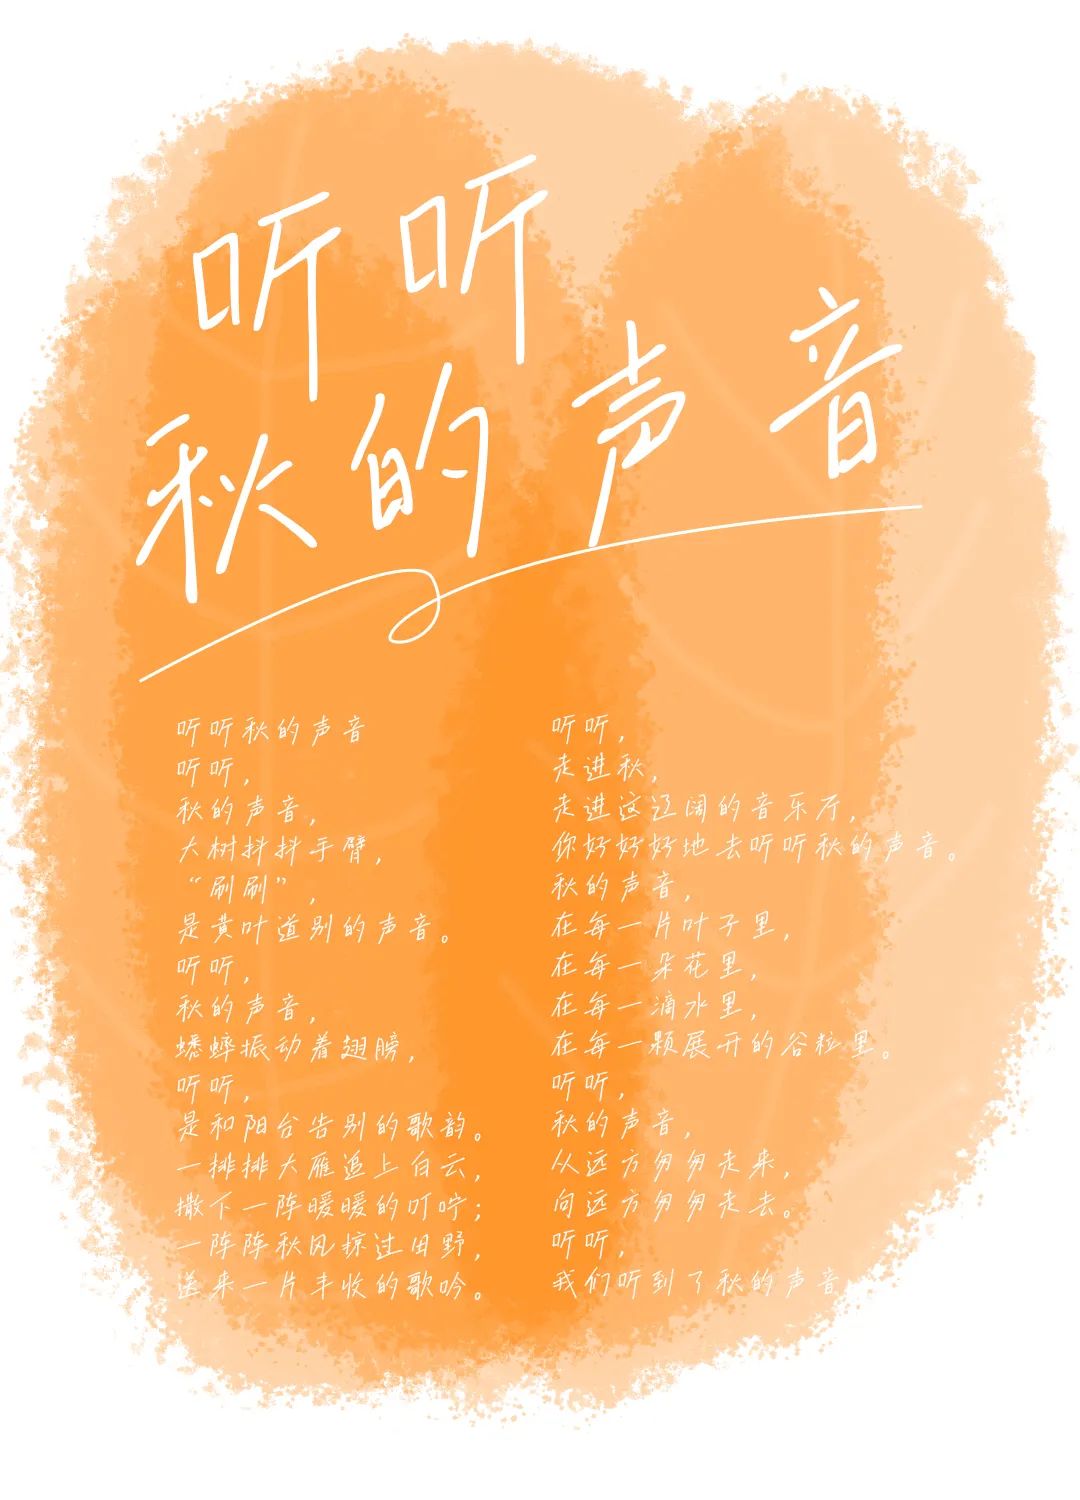 听听
秋的声音
听听秋的声音
听听，
秋的声音，
大树抖抖手臂，
“刷刷”，
是黄叶道别的声音。
听听，
秋的声音，
蟋蟀振动着翅膀，
听听，
是和阳台告别的歌韵。
一排排大雁追上白云，
撒下一阵暖暖的叮咛；
一阵阵秋风掠过田野，
送来一片丰收的歌吟。
听听，
走进秋，
走进这辽阔的音乐厅，
你好好好地去听听秋的声音。
秋的声音，
在每一片叶子里，
在每一朵花里，
在每一滴水里，
在每一颗展开的谷粒里。
听听，
秋的声音，
从远方匆匆走来，
向远方匆匆走去。
听听，
我们听到了秋的声音